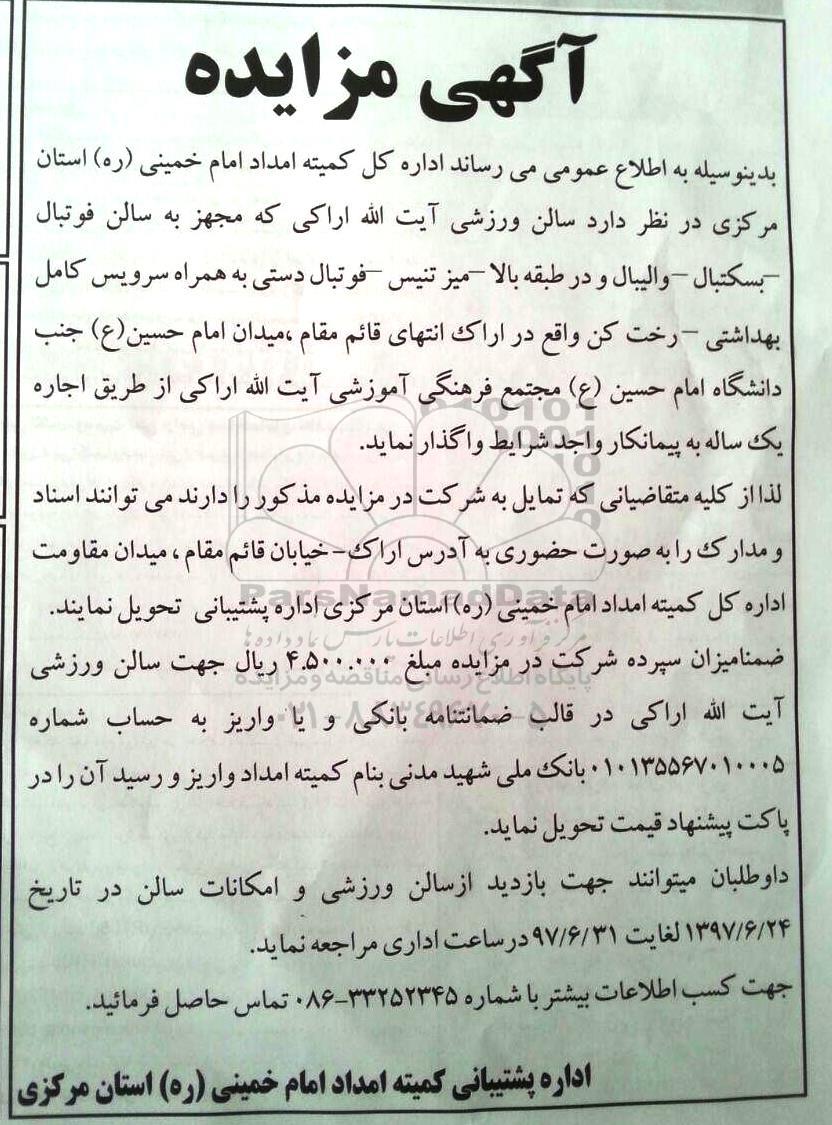 آگهی مزایده
بدینوسیله به اطلاع عمومی می رساند اداره کل کمیته امداد امام خمینی (ره) استان
مرکزی در نظر دارد سالن ورزشی آیت الله اراکی که مجهز به سالن فوتبال
-بسکتبال -والیبال و در طبقه بالا -میز تنیس -فوتبال دستی به همراه سرویس کامل
بهداشتی -رخت کن واقع در اراک انتهای قائم مقام ،میدان امام حسین(ع) جنب
دانشگاه امام حسین (ع) مجتمع فرهنگی آموزشی آیت الله اراکی از طریق اجاره
یک ساله به پیمانکار واجد شرایط واگذار نماید.
لذا از کلیه متقاضیانی که تمایل به شرکت در مزایده مذکور را دارند می توانند اسناد
و مدارک را به صورت حضوری به آدرس اراک-خیابان قائم مقام ، میدان مقاومت
اداره کل کمیته امداد امام خمینی (ره) استان مرکزی اداره پشتیبانی تحویل نمایند.
ضمنامیزان سپرده شرکت در مزایده مبلغ ۴.۵۰۰.۰۰۰ ریال جهت سالن ورزشی
آیت الله اراکی در قالب ضمانتنامه بانکی و یا واریز به حساب شماره
۰۱۰۱۳۵۵۶۷۰۱۰۰۰۵ بانک ملی شهید مدنی بنام کمیته امداد واریز و رسید آن را در
پاکت پیشنهاد قیمت تحویل نماید.
داوطلبان میتوانند جهت بازدید ازسالن ورزشی و امکانات سالن در تاریخ
۱۳۹۷/۶/۲۴ لغایت ۹۷/۶/۳۱ درساعت اداری مراجعه نماید.
جهت کسب اطلاعات بیشتر با شماره ۳۳۲۵۲۳۴۵-۰۸۶ تماس حاصل فرمائید.
اداره پشتیبانی کمیته امداد امام خمینی (ره) استان مرکزی
ParsNamadData
مرکز فرآوری اطلاعات پارس نماد داده ها
پایگاه اطلاع رسانی مناقصه و مزایده
۰۲۱-۸۸۳۴۹۶۷۰-۵